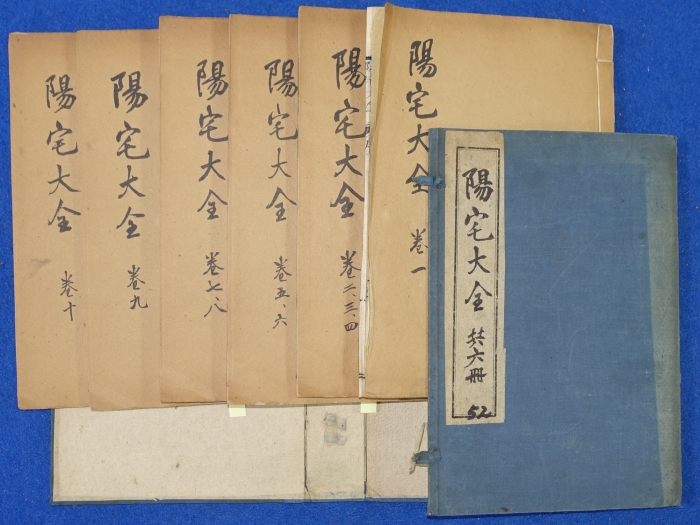 陽宅大全 卷一
陽宅大全 卷二、三、四
陽宅大全 卷五、六
陽宅大全 卷七、八
陽宅大全 卷九
陽宅大全 卷十
陽宅大全 共六冊
52